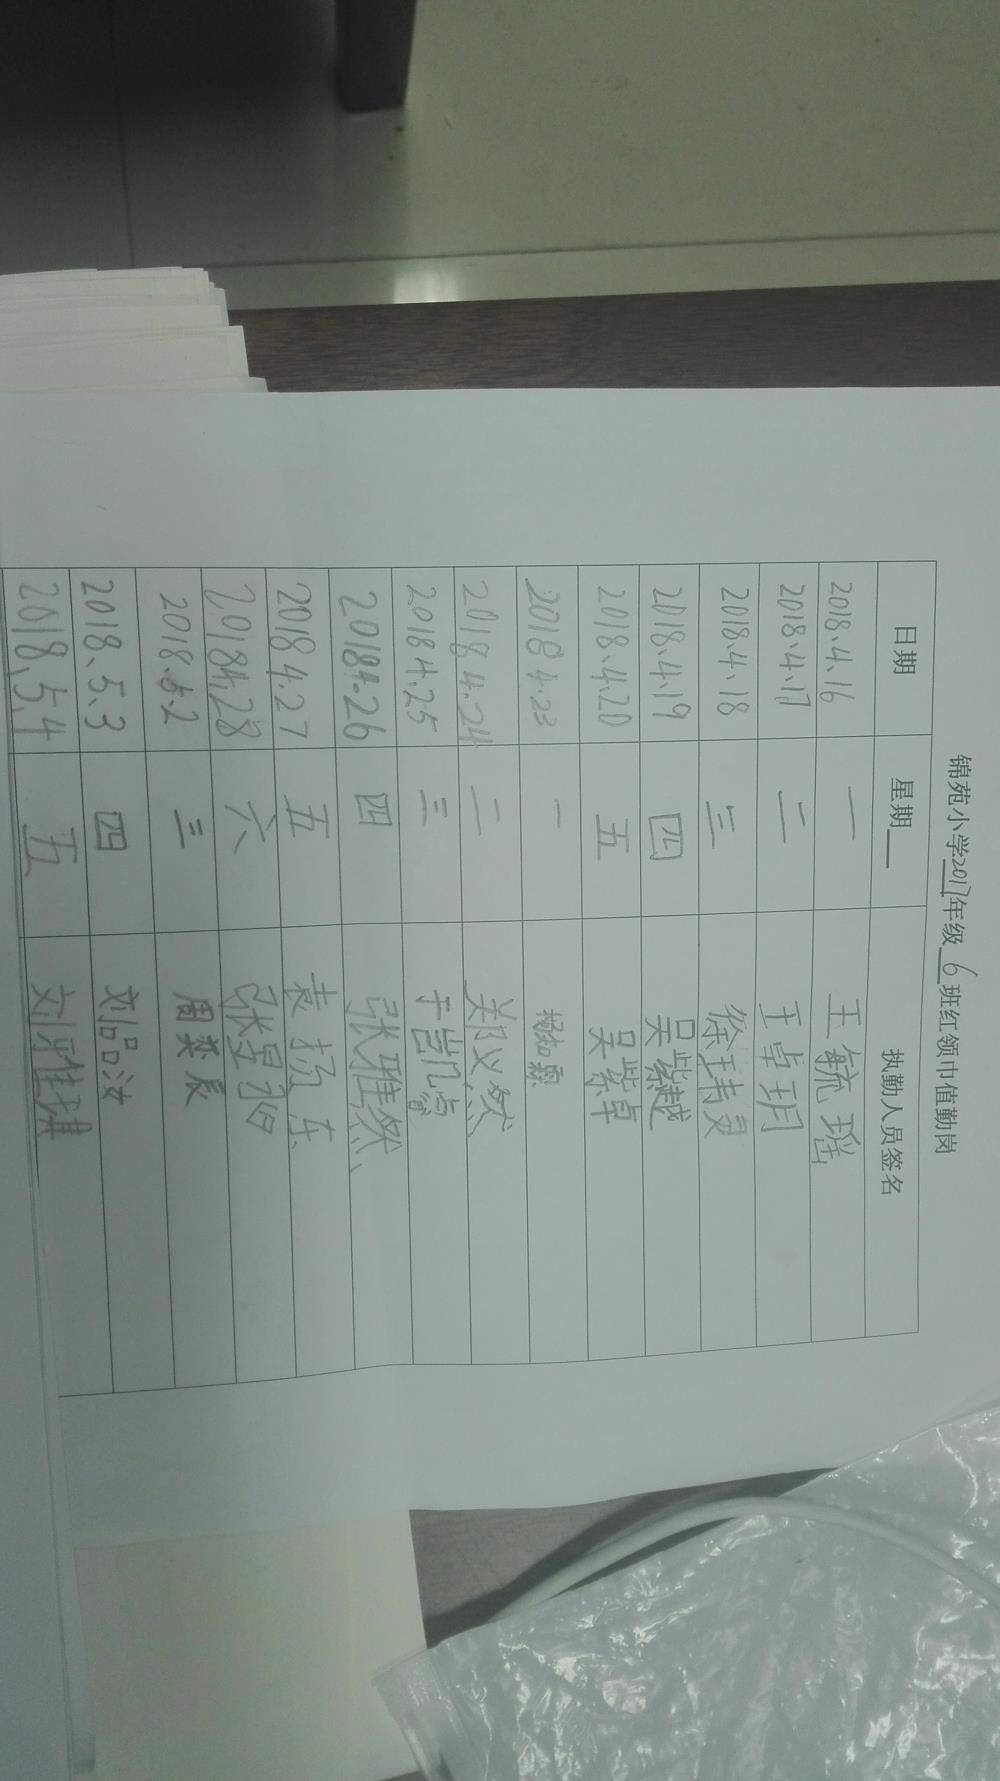 锦苑小学2017年级6班红领巾值勤岗
日期 星期 执勤人员签名
2018.4.16 一 王毓瑶
2018.4.17 二 王卓玥
2018.4.18 三 徐玮灵
2018.4.19 四 吴紫越
2018.4.20 五 吴紫卓
2018.4.23 一
2018.4.24 二 郑义然
2018.4.25 三 于凯
2018.4.26 四 张雅然
2018.4.27 五 袁扬东
2018.4.28 六 张昱
2018.5.2 三 周奕辰
2018.5.3 四 刘品汝
2018.5.4 五 刘雅琪